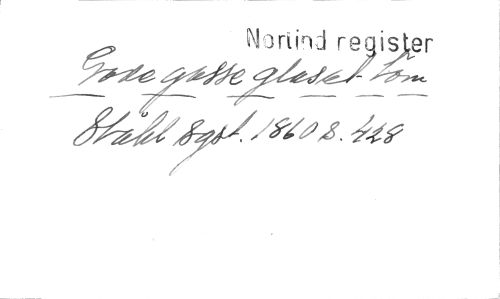 Norlind register
Gode gosse glaset töm
Ståhl Sgst. 1860 s. 428